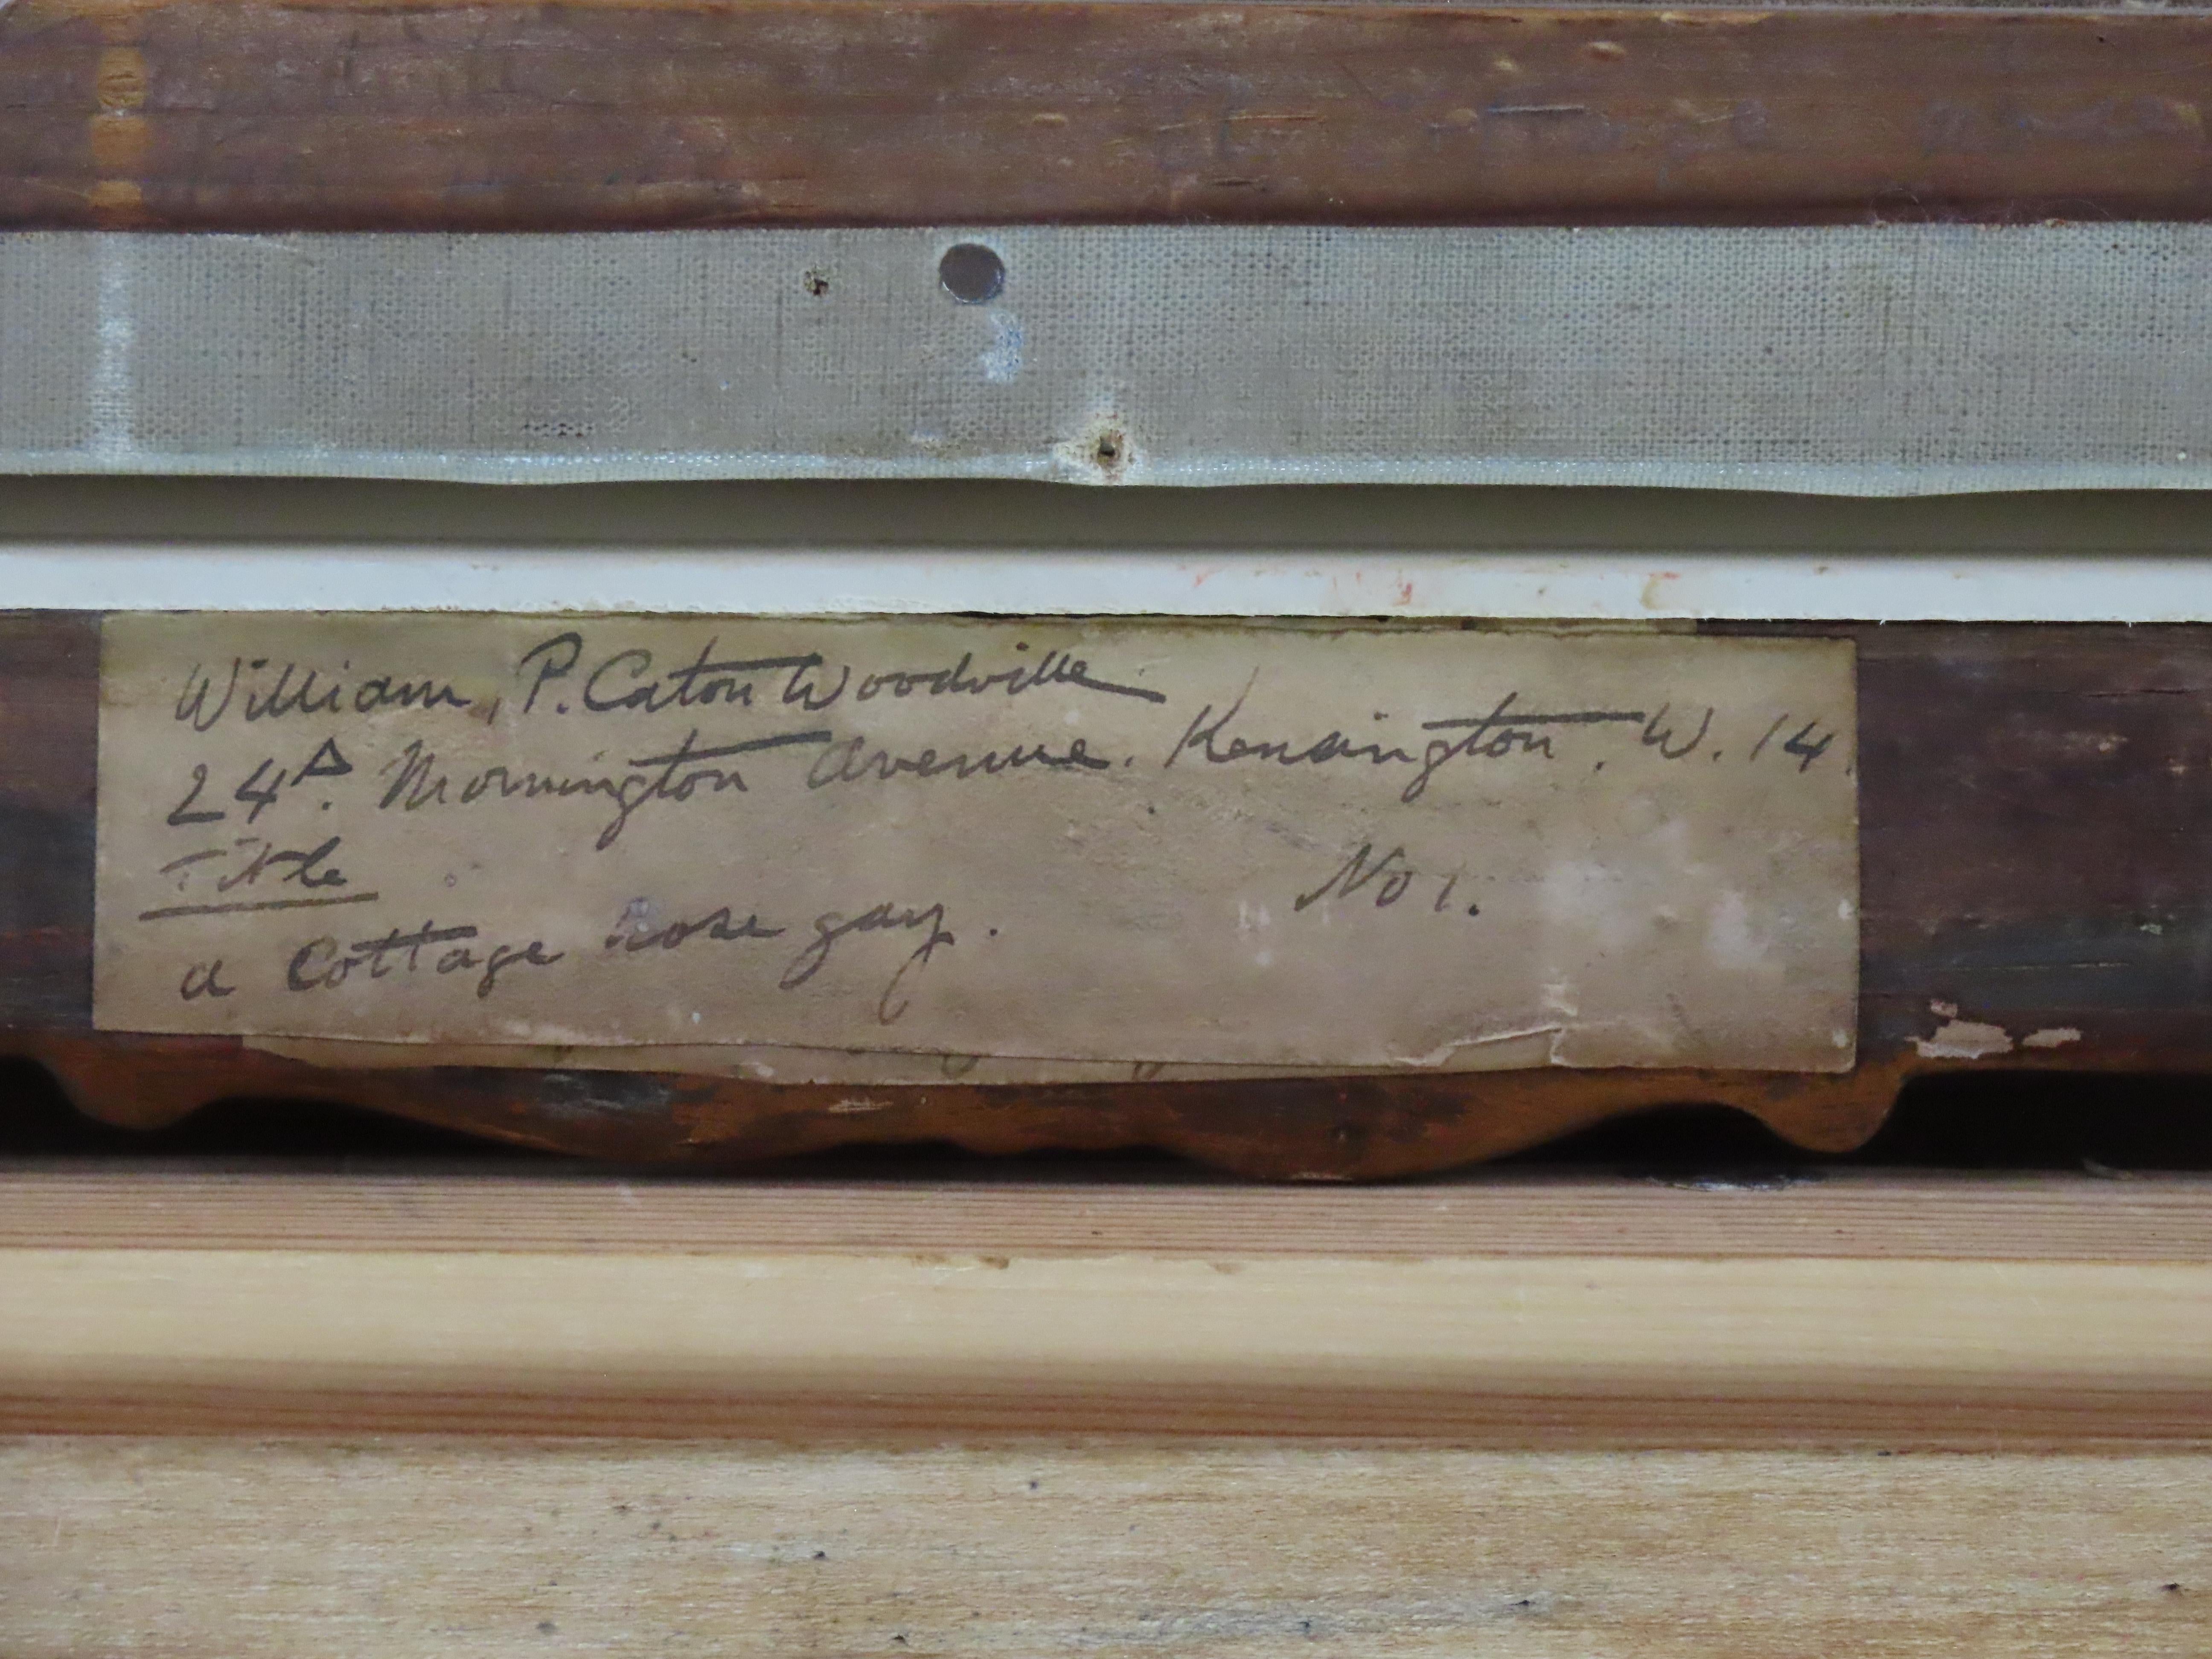 William, P. Caton Woodville
24A. Mornington Avenue. Kensington. W. 14.
Title
No 1.
a Cottage nose gay.